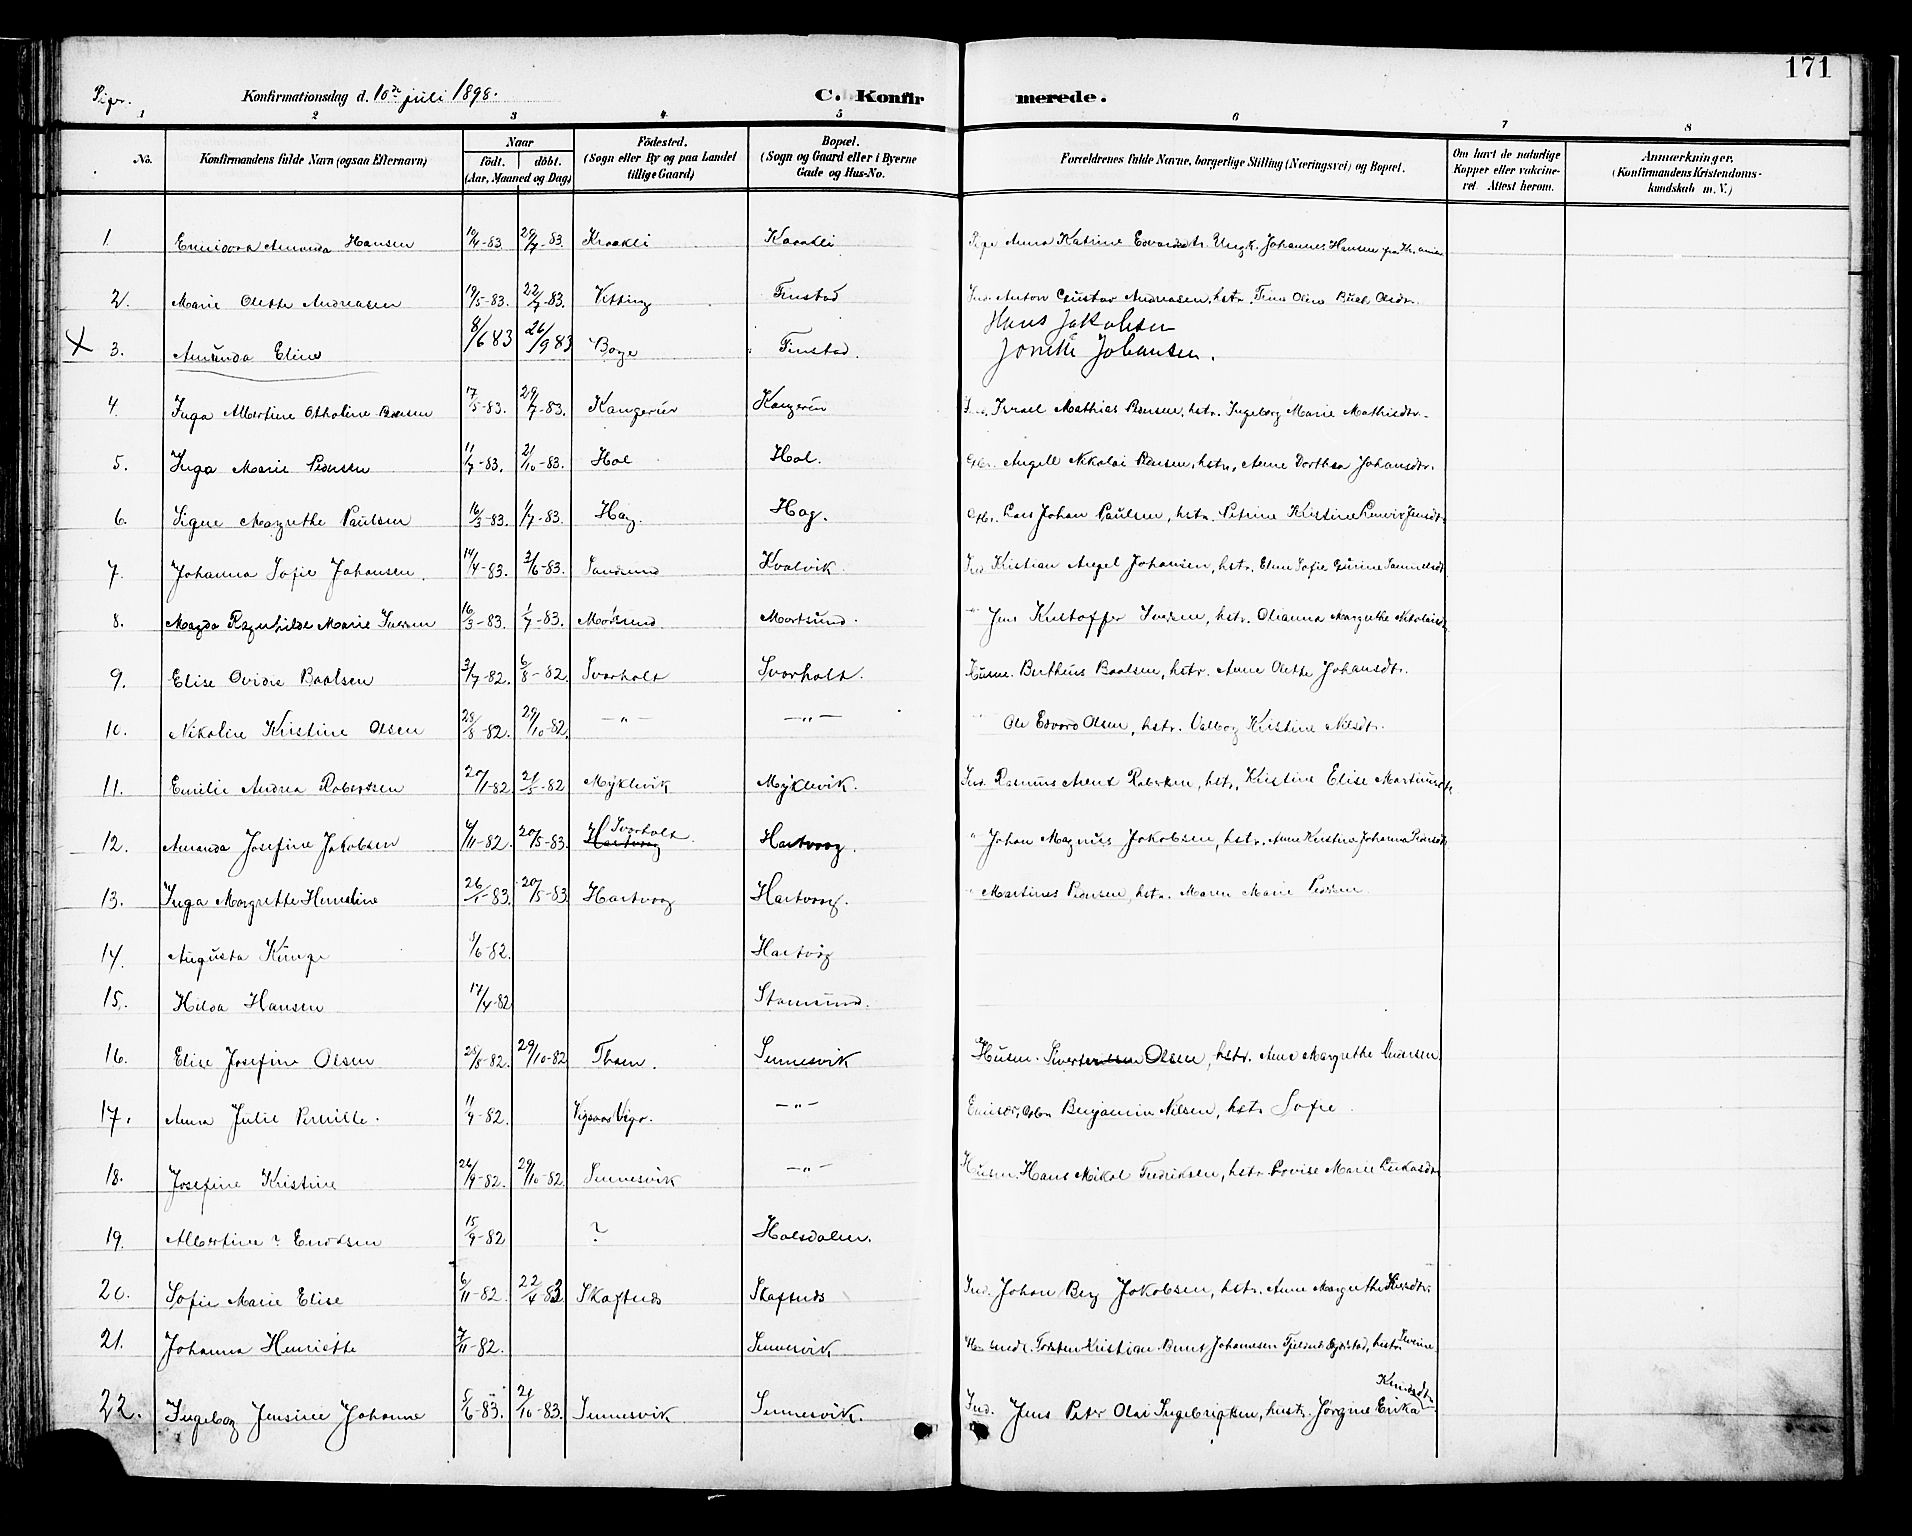 171
Piger. Konfirmationsdag d. 10de juli 1898. C. Konfirmerede.
1 2 3 4 5 6 7 8
No. Konfirmandens fulde Navn (ogsaa Efternavn) Naar født. døbt. (Aar, Maaned og Dag) Fødested. (Sogn eller By og paa Landet tillige Gaard) Bopæl. (Sogn og Gaard eller i Byerne Gade og Hus-No. Forældrenes fulde Navne, borgerlige Stilling (Næringsvei) og Bopæl. Om havt de naturlige Kopper eller vakcineret. Attest herom. Anmærkninger. (Konfirmandens Kristendomskundskab m. V.)
1. Amanda Hansen 10/4-83. 29/7-83. Kraakli Kaakli Pige Anna Katrine Edvardsdtr. Ungk. Johannes Hansen fra
2. Marie Olette Andreasen 19/5-83. 22/7-83. Vetting Finstad Ind. Anton Gustav Andreasen, hstr. Olsdtr.
X 3. Amanda Eline 8/6 83 26/9 83 Borge Finstad. Hans Jakobsen
Johansen.
4. Inga Albertine Othaline 17/5-83. 29/7-83. Kangerur Kangerur Israel Mathias hstr. Ingeborg Marie Mathisdtr.
5. Inga Marie Pedersen 11/7-83. 21/10-83. Hol Hol. Angell Nikolai hstr. Anne Dorthea Johansdtr.
6. Signe Magrethe Paulsen 16/3-83. 1/7-83. Hag. Hag. Lars Johan Paulsen, hstr. Petrine Kristine Jensdtr
7. Johanna Sofie Johansen. 14/4-83. 3/6-83. Sandsund Kvalvik. Ind Kristian Angel Johansen, hstr. Eline Sofie Samuelsdt
8. Magda Ragnhilde Marie Iversen 16/3-83. 1/7-83. Morsund Mortsund. " Jens Kristoffer Iversen, hstr. Olianna Margrethe Nikolaisdt
9. Elise Ovidie Baalsen 3/7-82. 6/8-82. Svarholt Svarholt. Husm. Bertheus Baalsen, hstr. Anne Olette Johansdtr.
10. Nikoline Kristine Olsen 28/8-82. 29/10-82. —"— —"— " Ole Edvard Olsen, hstr. Valborg Kristine Nilsdtr.
11. Emilie Andrea Robertsen 20/1-82. 21/5-82 Myklevik Myklevik. Ind. Rasmus Arent Robertsen, hstr. Kristine Elise
12. Amanda Josefine Jakobsen 4/11-82. 20/5-83. Hartvaag Svarholt. Hartvaag. " Johan Magnus Jakobsen, hstr. Anne Kristine Johanna
13. Inga Margrethe Hemeline 26/1-83. 20/5-83. Hartvaag Hartvaag. " Martines Pedersen, hstr. Maren Marie
14. Augusta Kunge 5/6-82. Hartvåg
15. Hilda Hansen 17/4-82 Stamsund.
16. Elise Josefine Olsen 28/8-82. 29/10-82 Thom. Sennesvik Husm. Olsen, hstr. Ane Margrethe Andersen
17. Anna Julie Pernille. 11/9-82. Vigsaas Vaagr. —"— Benjamin Nilsen, hstr Sofie.
18. Josefine Kristine 26/9-82. 29/10-82. Sennesvik —"— Husm. Hans Mikal Fredriksen, hstr. Lovise Marie Lukasdtr
19. Albertine ? Endresen 15/9-82 ? Halsdalen.
20. Sofie Marie Elise 6/11-82. 22/4-83 Skaftnds Skaftnds Ind. Johan Berg Jakobsen, hstr. Anne Margrethe
21. Johanna Henriette 7/11-82. Sennesvik Kristian Bernt Johannesen hustr.
22. Ingeborg Jensine Johanne 5/6-83. 21/10-83. Sennesvik Sennesvik. Ind. Jens Peter Olai Ingebrigtsen, hustr. Jørgine Erika Knudsdtr.